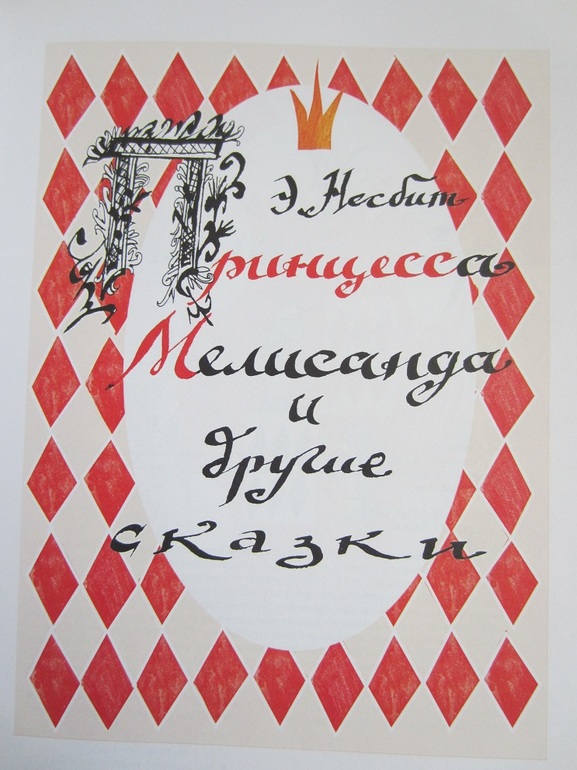 Э. Несбит
Принцесса
Мелисанда
и
другие
сказки